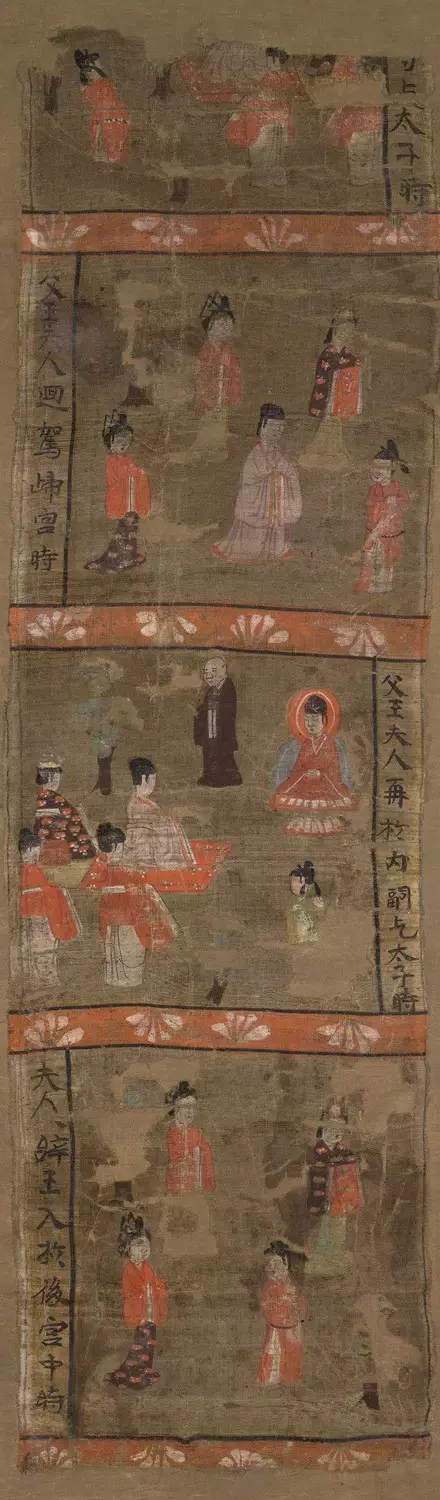 上太子時
父王夫人迴駕歸宮時
父王夫人再扵内嗣乞太子時
夫人辝王入扵後宮中時